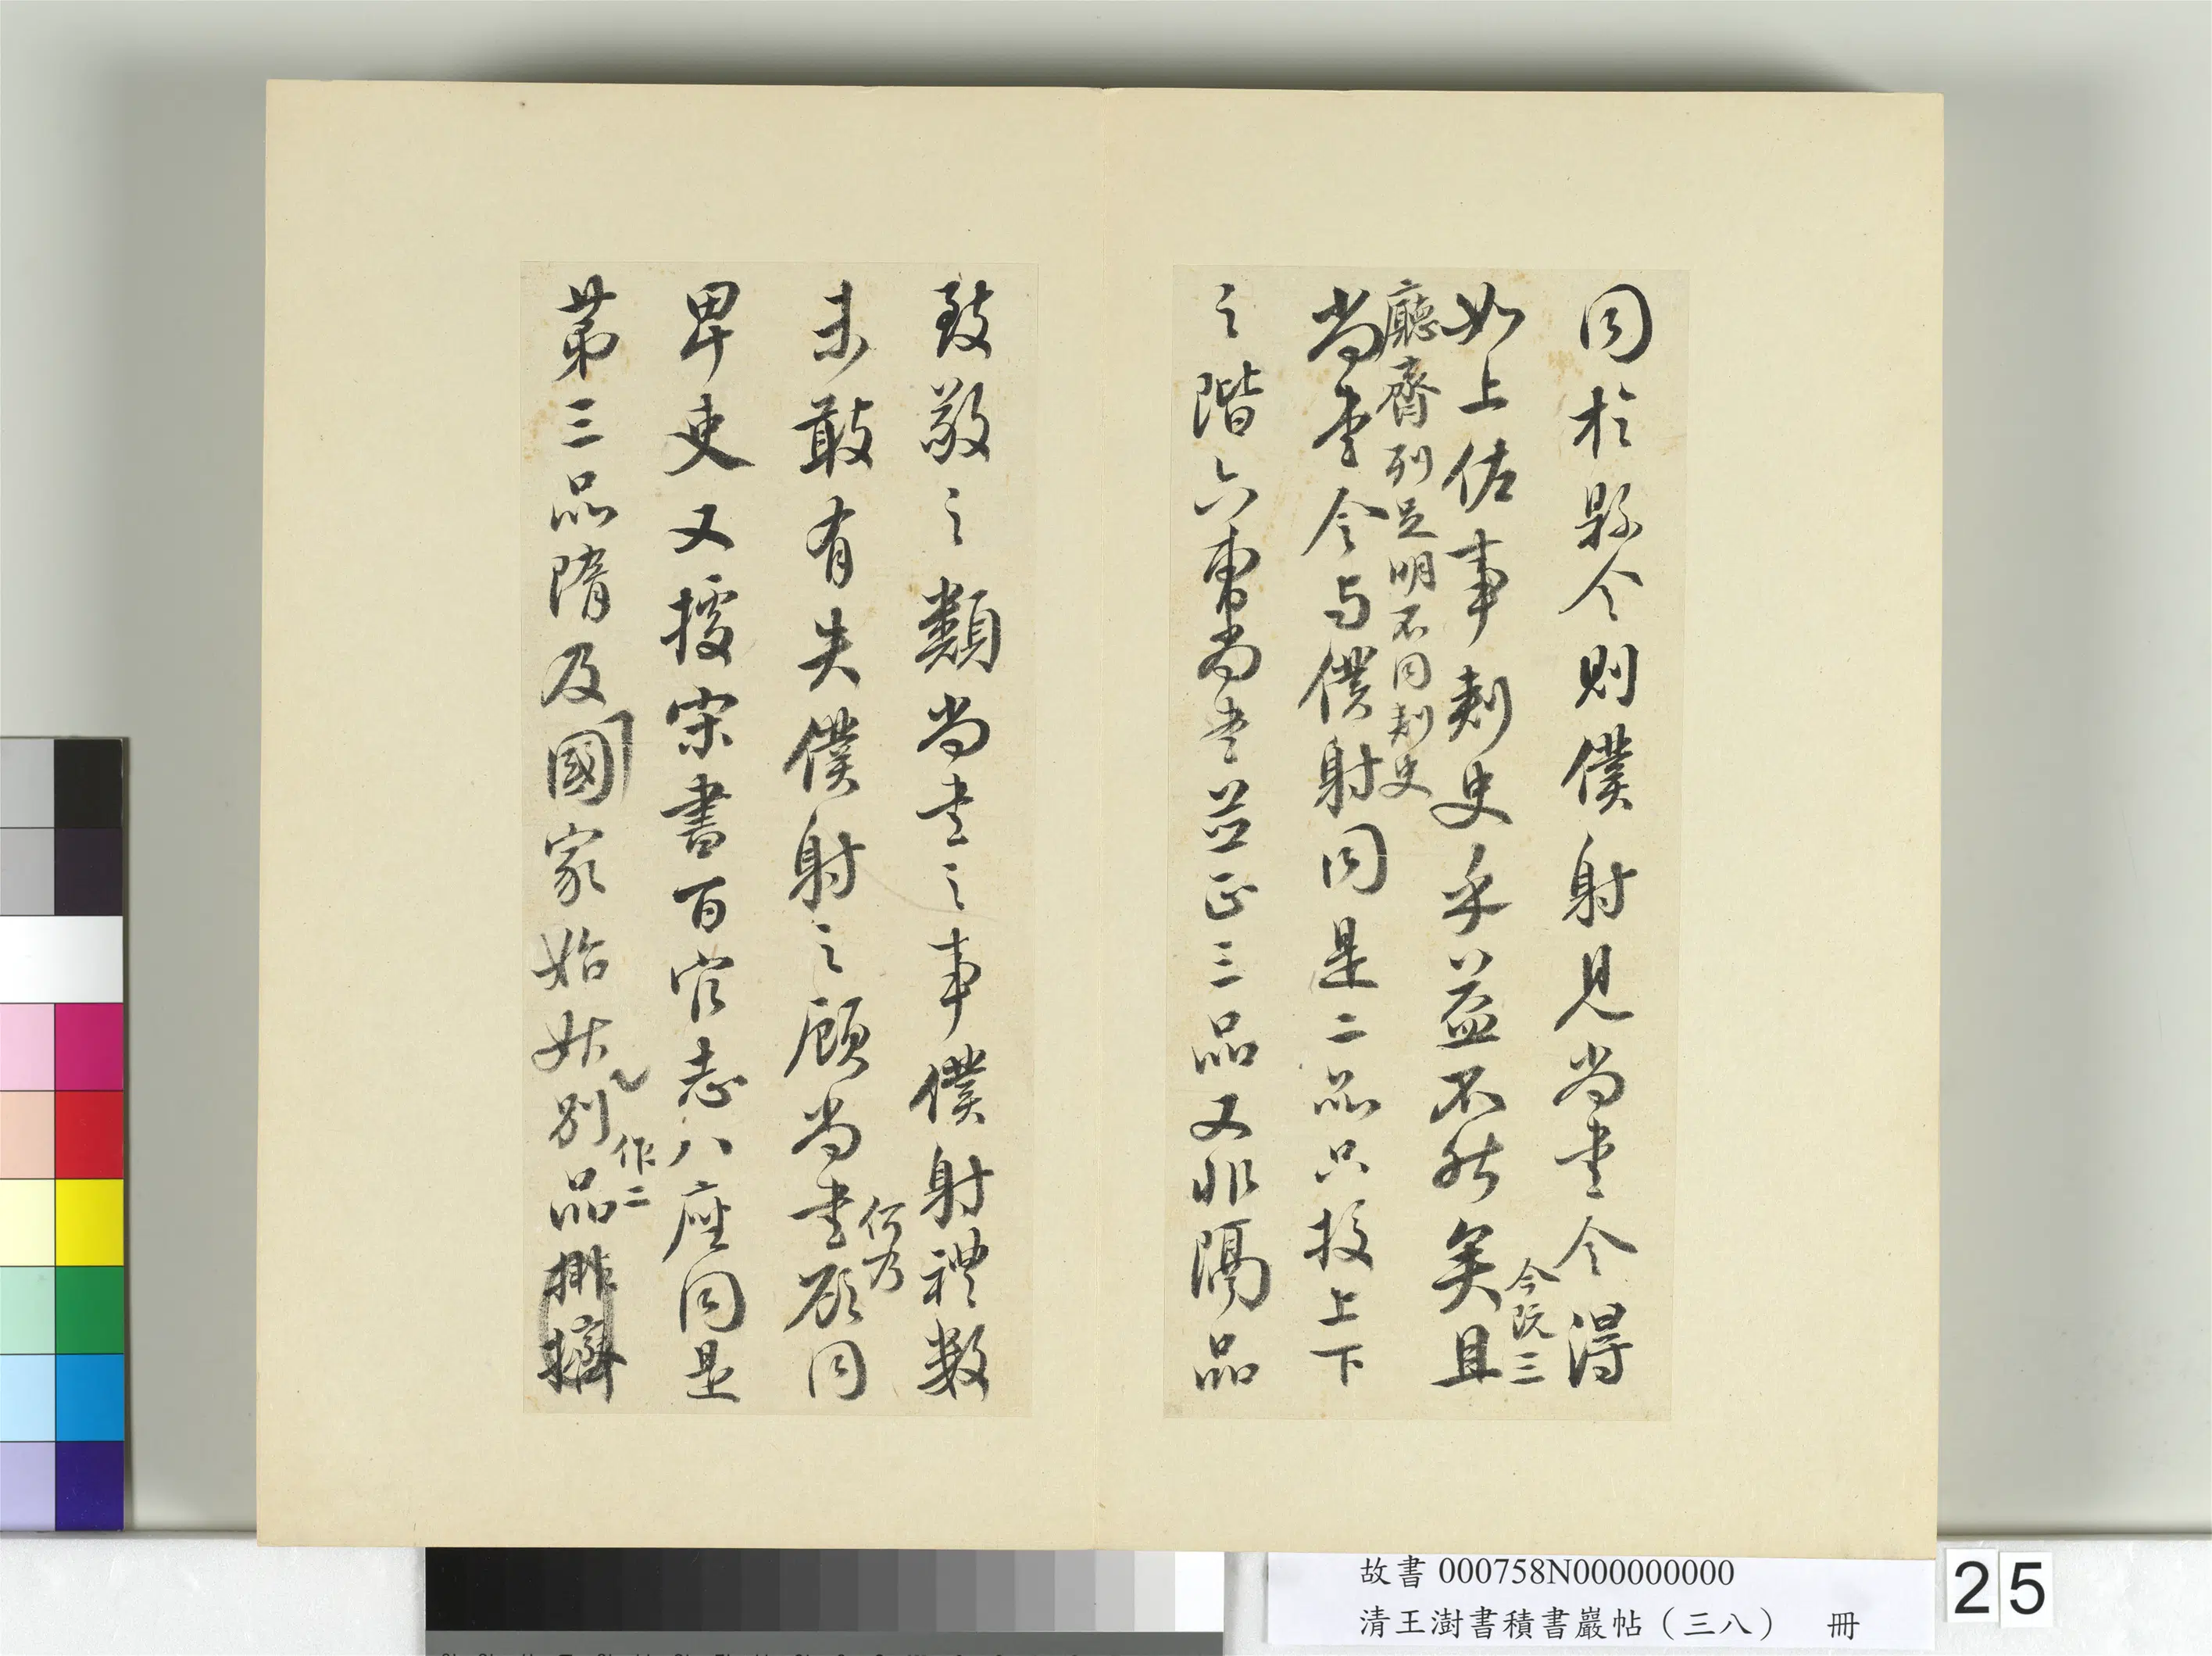 同於縣令則僕射見尚書令得
如上佐事刾史乎益不然矣且
今既三
廳齊列足明不同刾史
尚書令与僕射同是二品只挍上下
之階六曹尚書並正三品又非隔品
致敬之類尚書之事僕射禮數
未敢有失僕射之顧尚書
何乃
欲同
卑吏又據宋書百官志八座同是
苐三品隋及國家始
升
別
作二
品排擠
故書 000758N000000000
清王澍書積書巖帖（三八） 冊
25